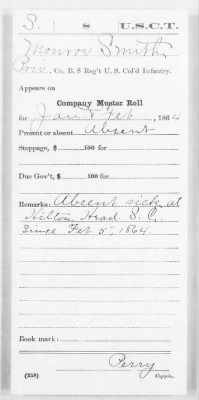 S. | 8 | U.S.C.T.
Monroe Smith
Priv., Co. B, 8 Reg't U. S. Col'd Infantry.
Appears on
Company Muster Roll
for Jan & Feb, 1864
Present or absent Absent
Stoppage, $ 100 for
Due Gov't, $ 100 for
Remarks: Absent sick at
Hilton Head S. C.
Since Feb 5, 1864.
Book mark:
Perry
(358) Copyist.